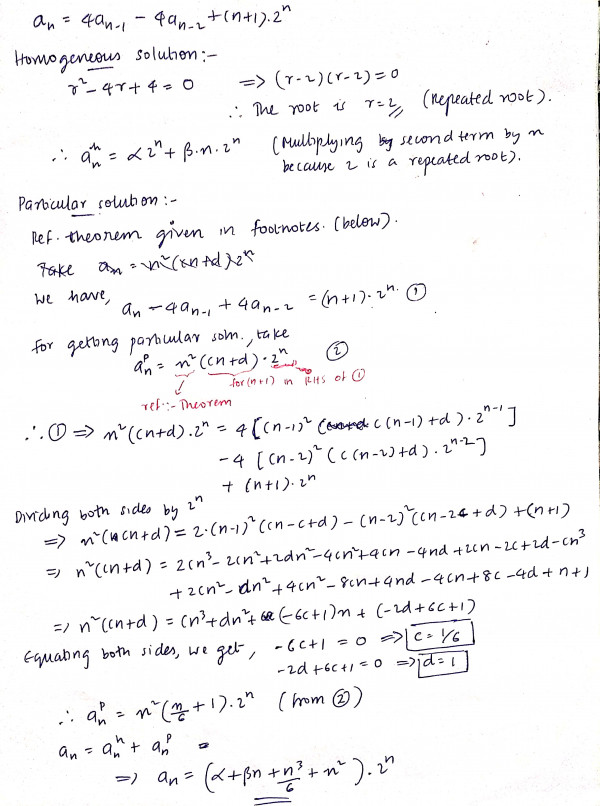 aₙ = 4aₙ₋₁ - 4aₙ₋₂ + (n+1).2ⁿ
Homogeneous solution:-
r² - 4r + 4 = 0 => (r-2)(r-2) = 0
∴ The root is r=2,, (repeated root).
∴ aₙʰ = α2ⁿ + β.n.2ⁿ (Multiplying second term by n
because 2 is a repeated root).
Particular solution:-
Ref. theorem given in footnotes. (below).
Take aₙ = n²(cn+d)2ⁿ
We have, aₙ - 4aₙ₋₁ + 4aₙ₋₂ = (n+1).2ⁿ. ①
For getting particular soln., take
aₙᵖ = n²(cn+d).2ⁿ ②
for (n+1) in RHS of ①
ref:- Theorem
∴ ① => n²(cn+d).2ⁿ = 4[(n-1)² (c(n-1)+d).2ⁿ⁻¹]
-4 [(n-2)² (c(n-2)+d).2ⁿ⁻²]
+ (n+1).2ⁿ
Dividing both sides by 2ⁿ
=> n²(cn+d) = 2.(n-1)²(cn-c+d) - (n-2)²(cn-2c+d) + (n+1)
=> n²(cn+d) = 2cn³-2cn²+2dn²-4cn²+4cn-4nd+2cn-2c+2d-cn³
+2cn²-dn²+4cn²-8cn+4nd-4cn+8c-4d+n+1
=> n²(cn+d) = cn³+dn²+(-6c+1)n + (-2d+6c+1)
Equating both sides, we get, -6c+1 = 0 => c=1/6
-2d+6c+1=0 => d=1
∴ aₙᵖ = n²(n/6 + 1).2ⁿ (from ②)
aₙ = aₙʰ + aₙᵖ
=> aₙ = (α+βn+n³/6 + n²).2ⁿ